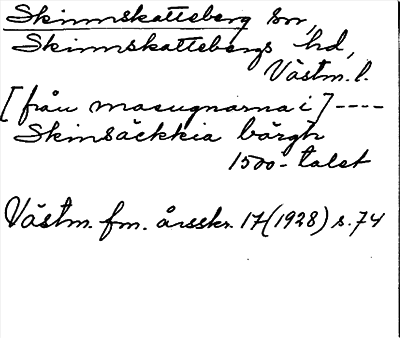 Skinnskatteberg sn,
Skinnskattebergs hd,
Västm. l.
[från masugnarna i] ----
Skinsäckkia bärgh
1500-talet
Västm. fm. årsskr. 17 (1928) s. 74